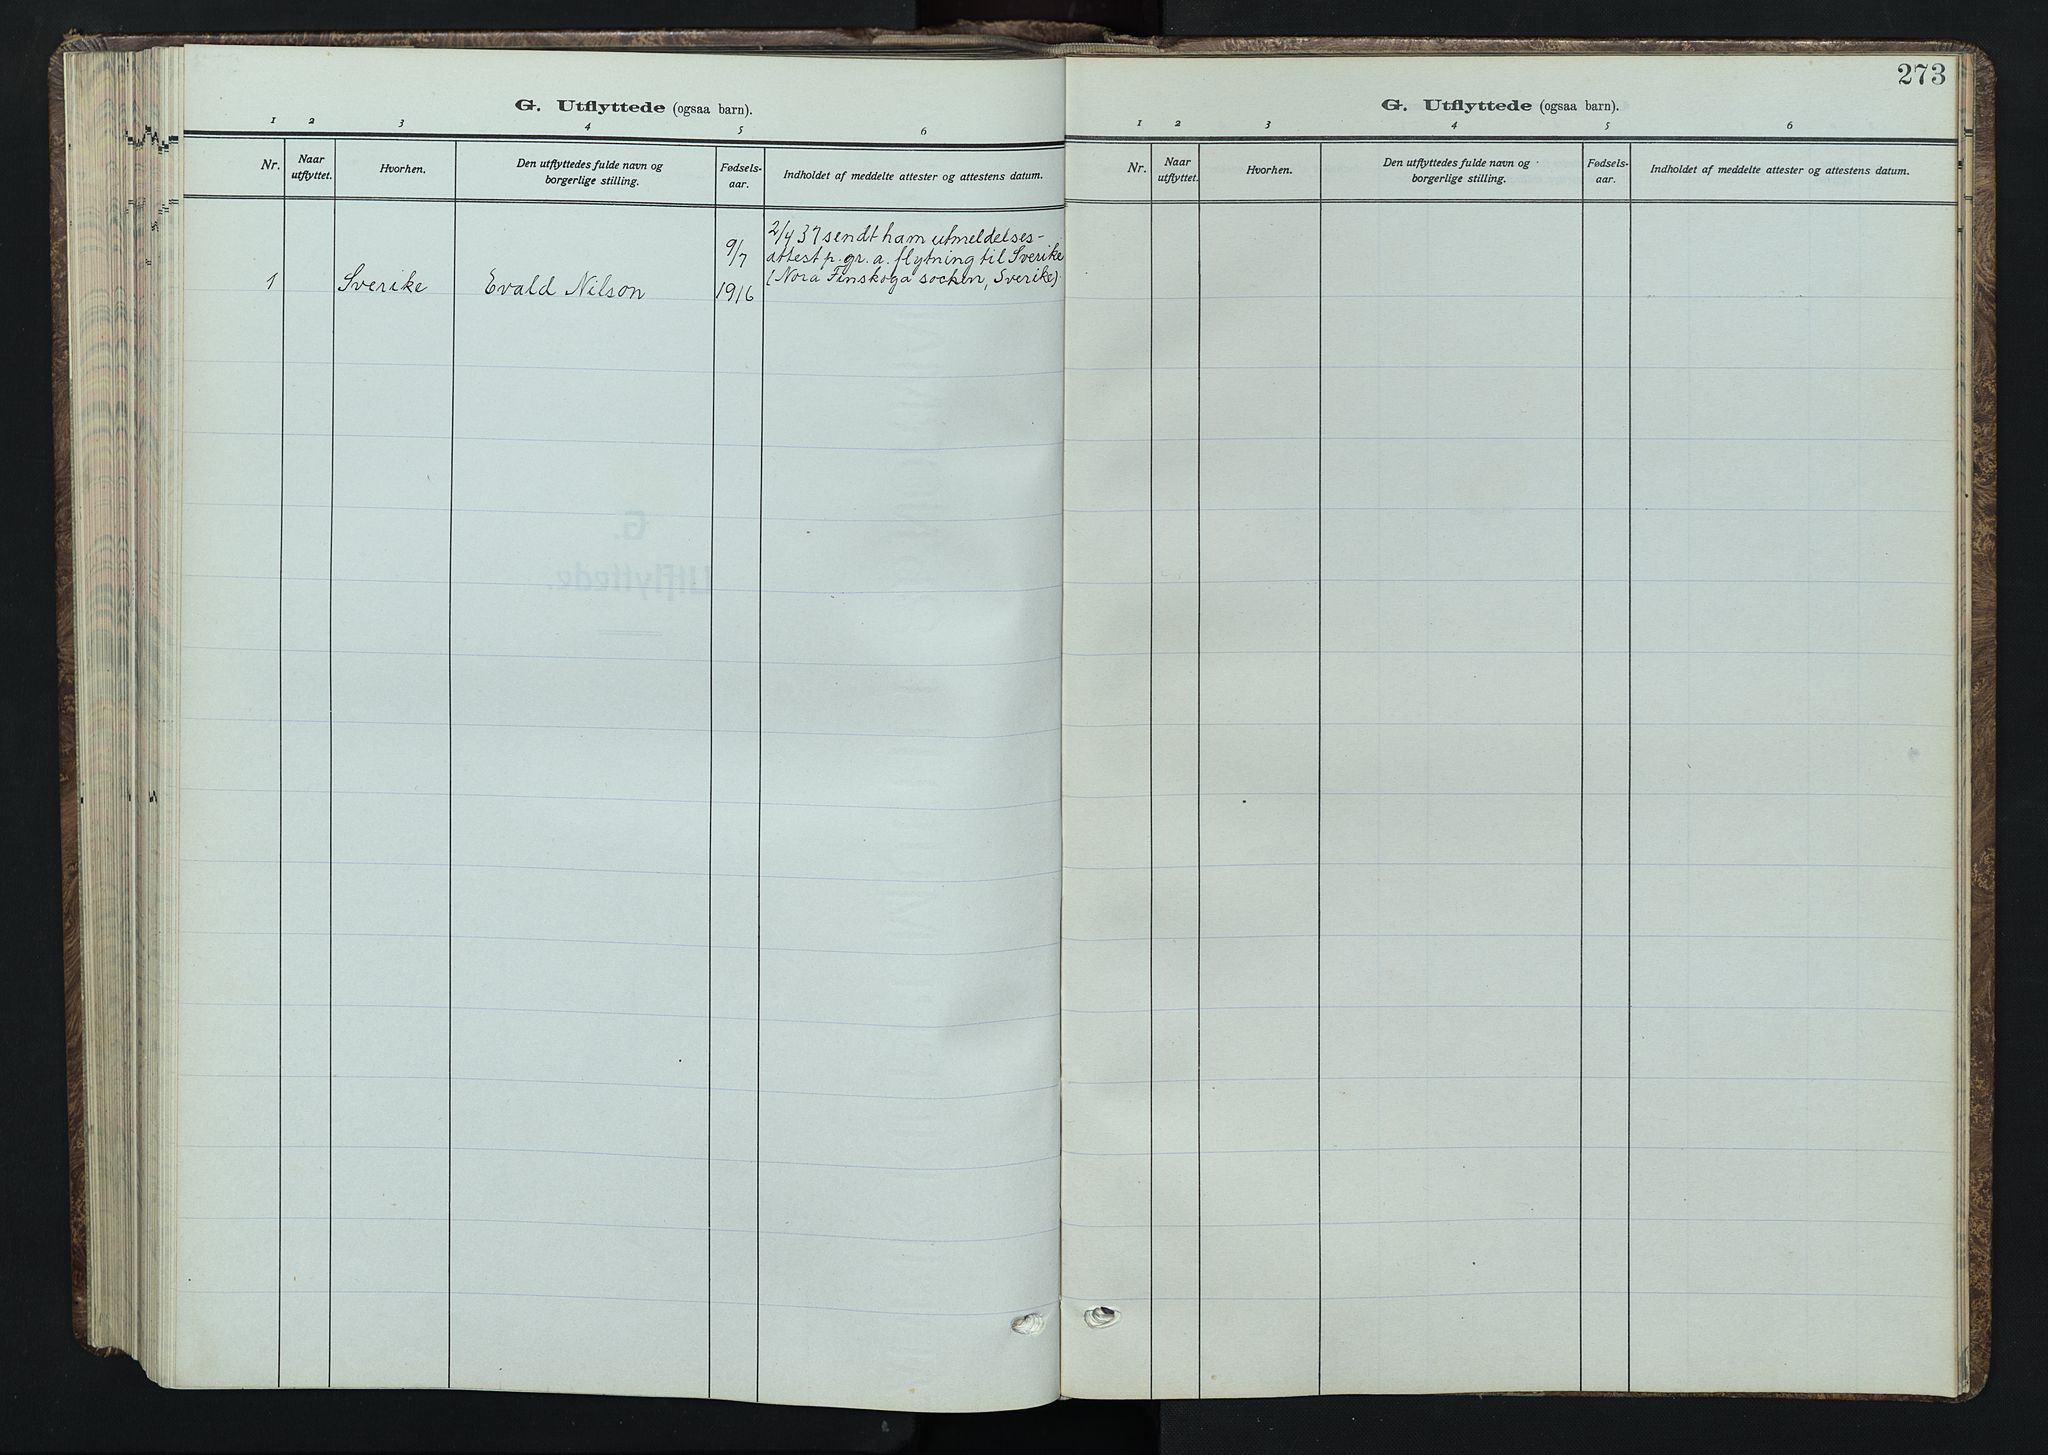 G. Utflyttede (ogsaa barn).
1 2 3 4 5 6
Nr. Naar utflyttet. Hvorhen. Den utflyttedes fulde navn og borgerlige stilling. Fødselsaar. Indholdet af meddelte attester og attestens datum.
1 Sverike Evald Nilson 9/7 1916
2/4 37 sendt ham utmeldelses-
attest p. gr. a. flytning til Sverike
(Nora Finskoga socken, Sverike).
273
G. Utflyttede (ogsaa barn).
1 2 3 4 5 6
Nr. Naar utflyttet. Hvorhen. Den utflyttedes fulde navn og borgerlige stilling. Fødselsaar. Indholdet af meddelte attester og attestens datum.
G.
Utflyttede.